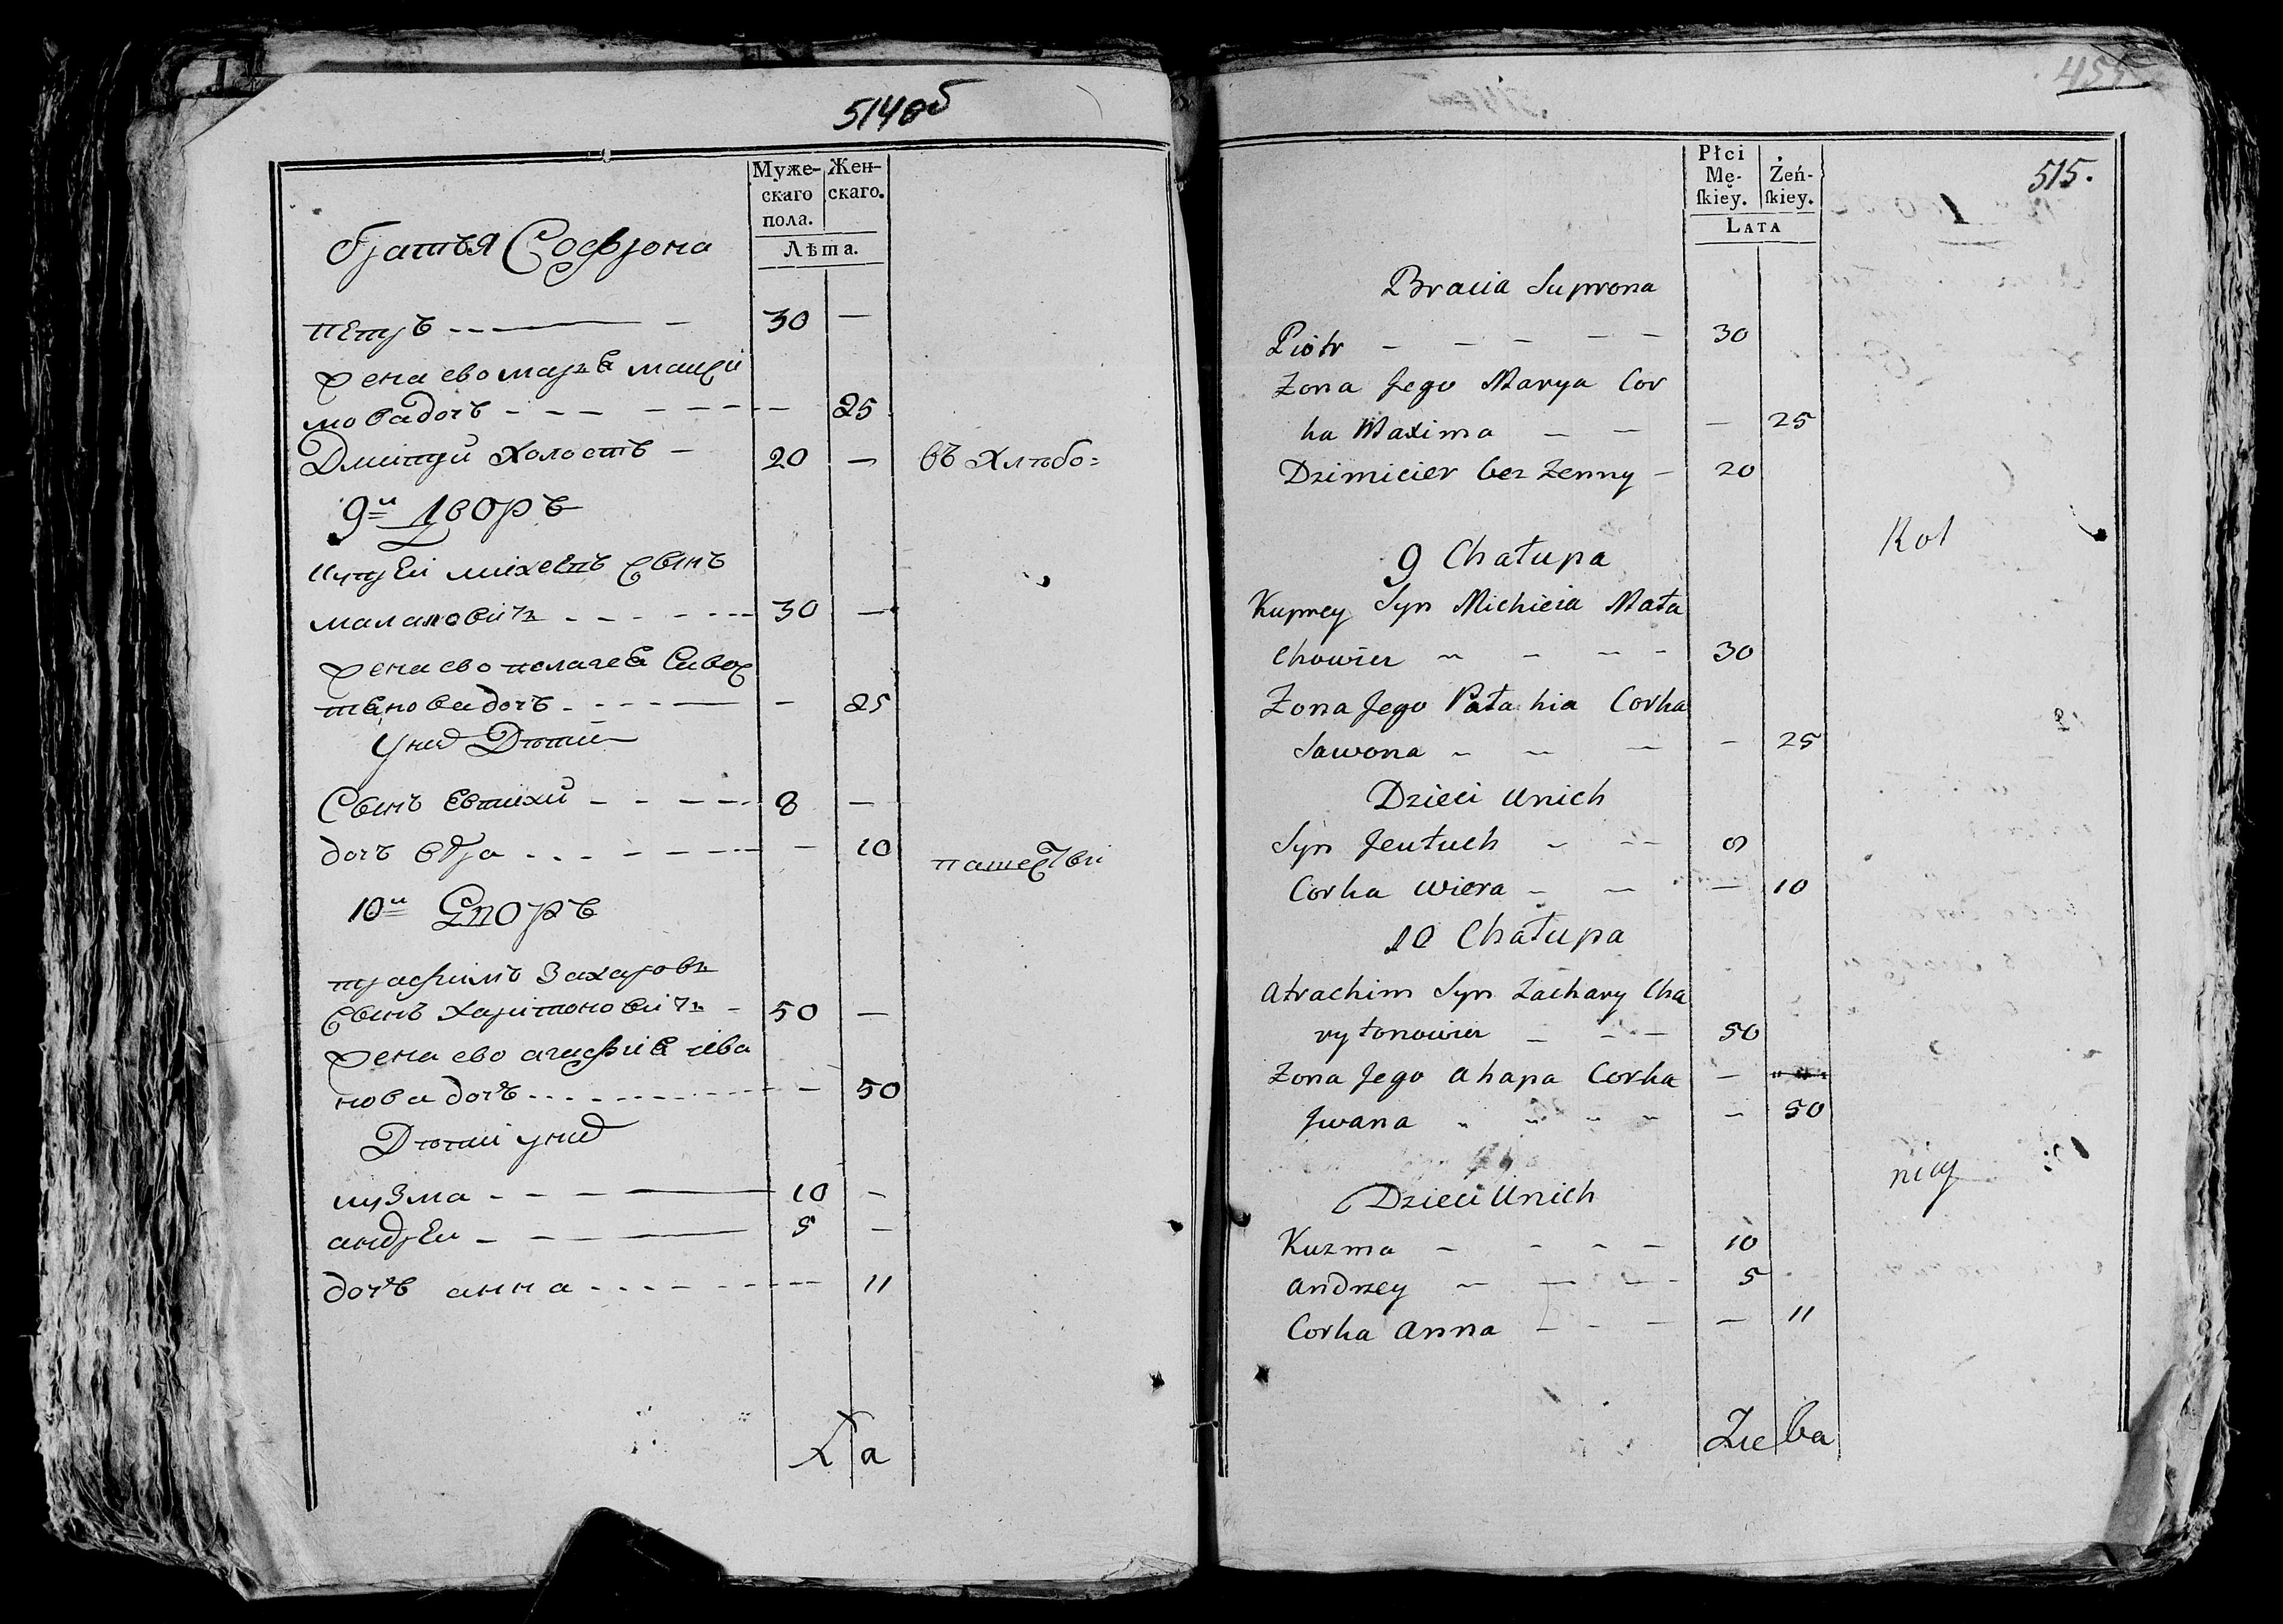 514об
Муже-
скаго
пола.
Жен-
скаго.
Лѣта.
братья Софрона
петръ 30 —
жена ево марья макси
мова дочь — 25
Дмитрий холостъ 20 — въ хлѣбо=
9й Дворъ
купрей михеевъ сынъ
малаховичъ 30 —
жена ево пелагея Савос
тянова дочь — 25
у них Дѣти
Сынъ Евтихий 8 —
дочь вѣра — 10
10й Дворъ
трафимъ Захаровъ
сынъ харитоновичъ 50 —
жена ево агафия ива
нова дочь — 50
Дѣти у них
кузма 10 —
андрей 5 —
дочь анна — 11
455
515.
Płci
Mę-
ſkiey.
Żeń-
ſkiey.
LATA
Bracia Suprona
Piotr 30
Zona Jego Marya Cor
ka Maxima — 25
Dzimicier bez Zenny 20
Kot
9 Chałupa
Kuprey Syn Michieia Mała
chowicz 30
Zona Jego Pałahia Corka
Sawona — 25
Dzieci Unich
Syn Jeutuch 8
Corka Wiera — 10
10 Chałupa
Atrachim Syn Zachary Cha
rytonowicz 50
Zona Jego Ahapa Corka —
Jwana — 50
Dzieci Unich
Kuzma 10
Andrzey 5
Corka Anna — 11